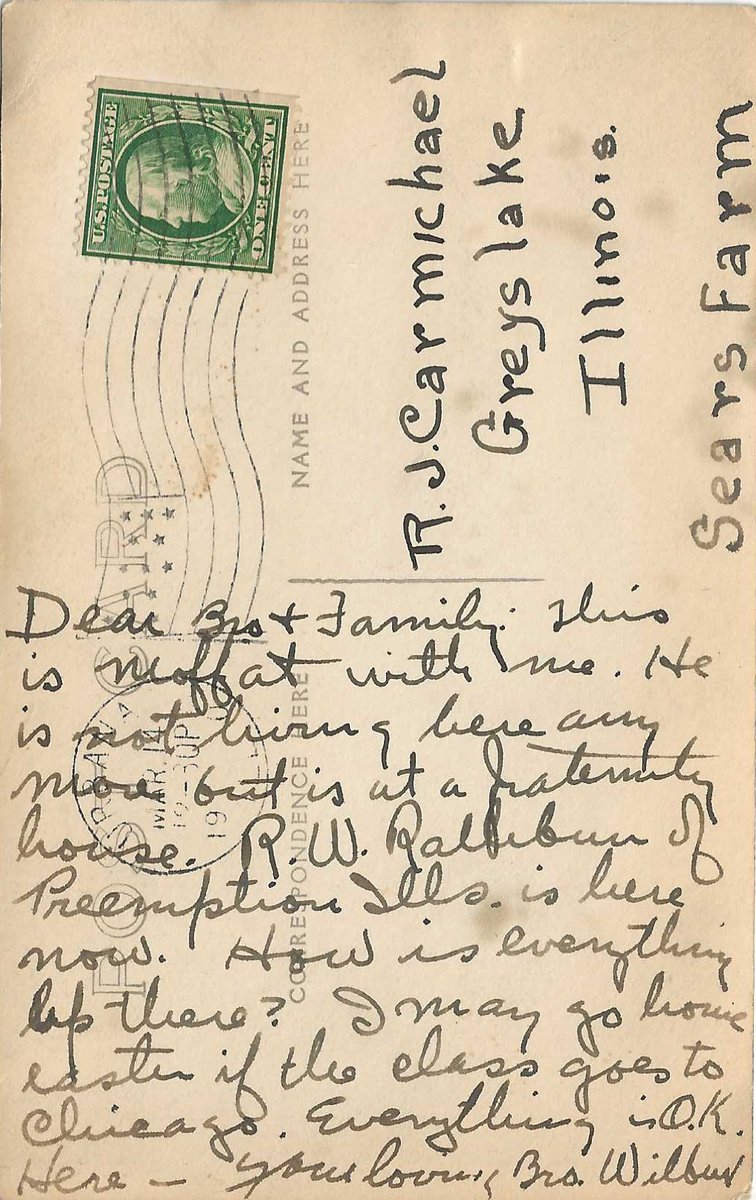 U.S. POSTAGE
ONE CENT
POST CARD
NAME AND ADDRESS HERE
CORRESPONDENCE HERE
MAR 14
12-30P
19
R. J. Carmichael
Greyslake
Illinois.
Sears Farm
Dear Bro + Family: This
is Moffat with me. He
is not living here any
more but is at a fraternity
house. R. W. Rathbun of
Preemption Ills. is here
now. How is everything
up there? I may go home
easter if the class goes to
Chicago. Everything is O.K.
Here – Your loving Bro. Wilbur